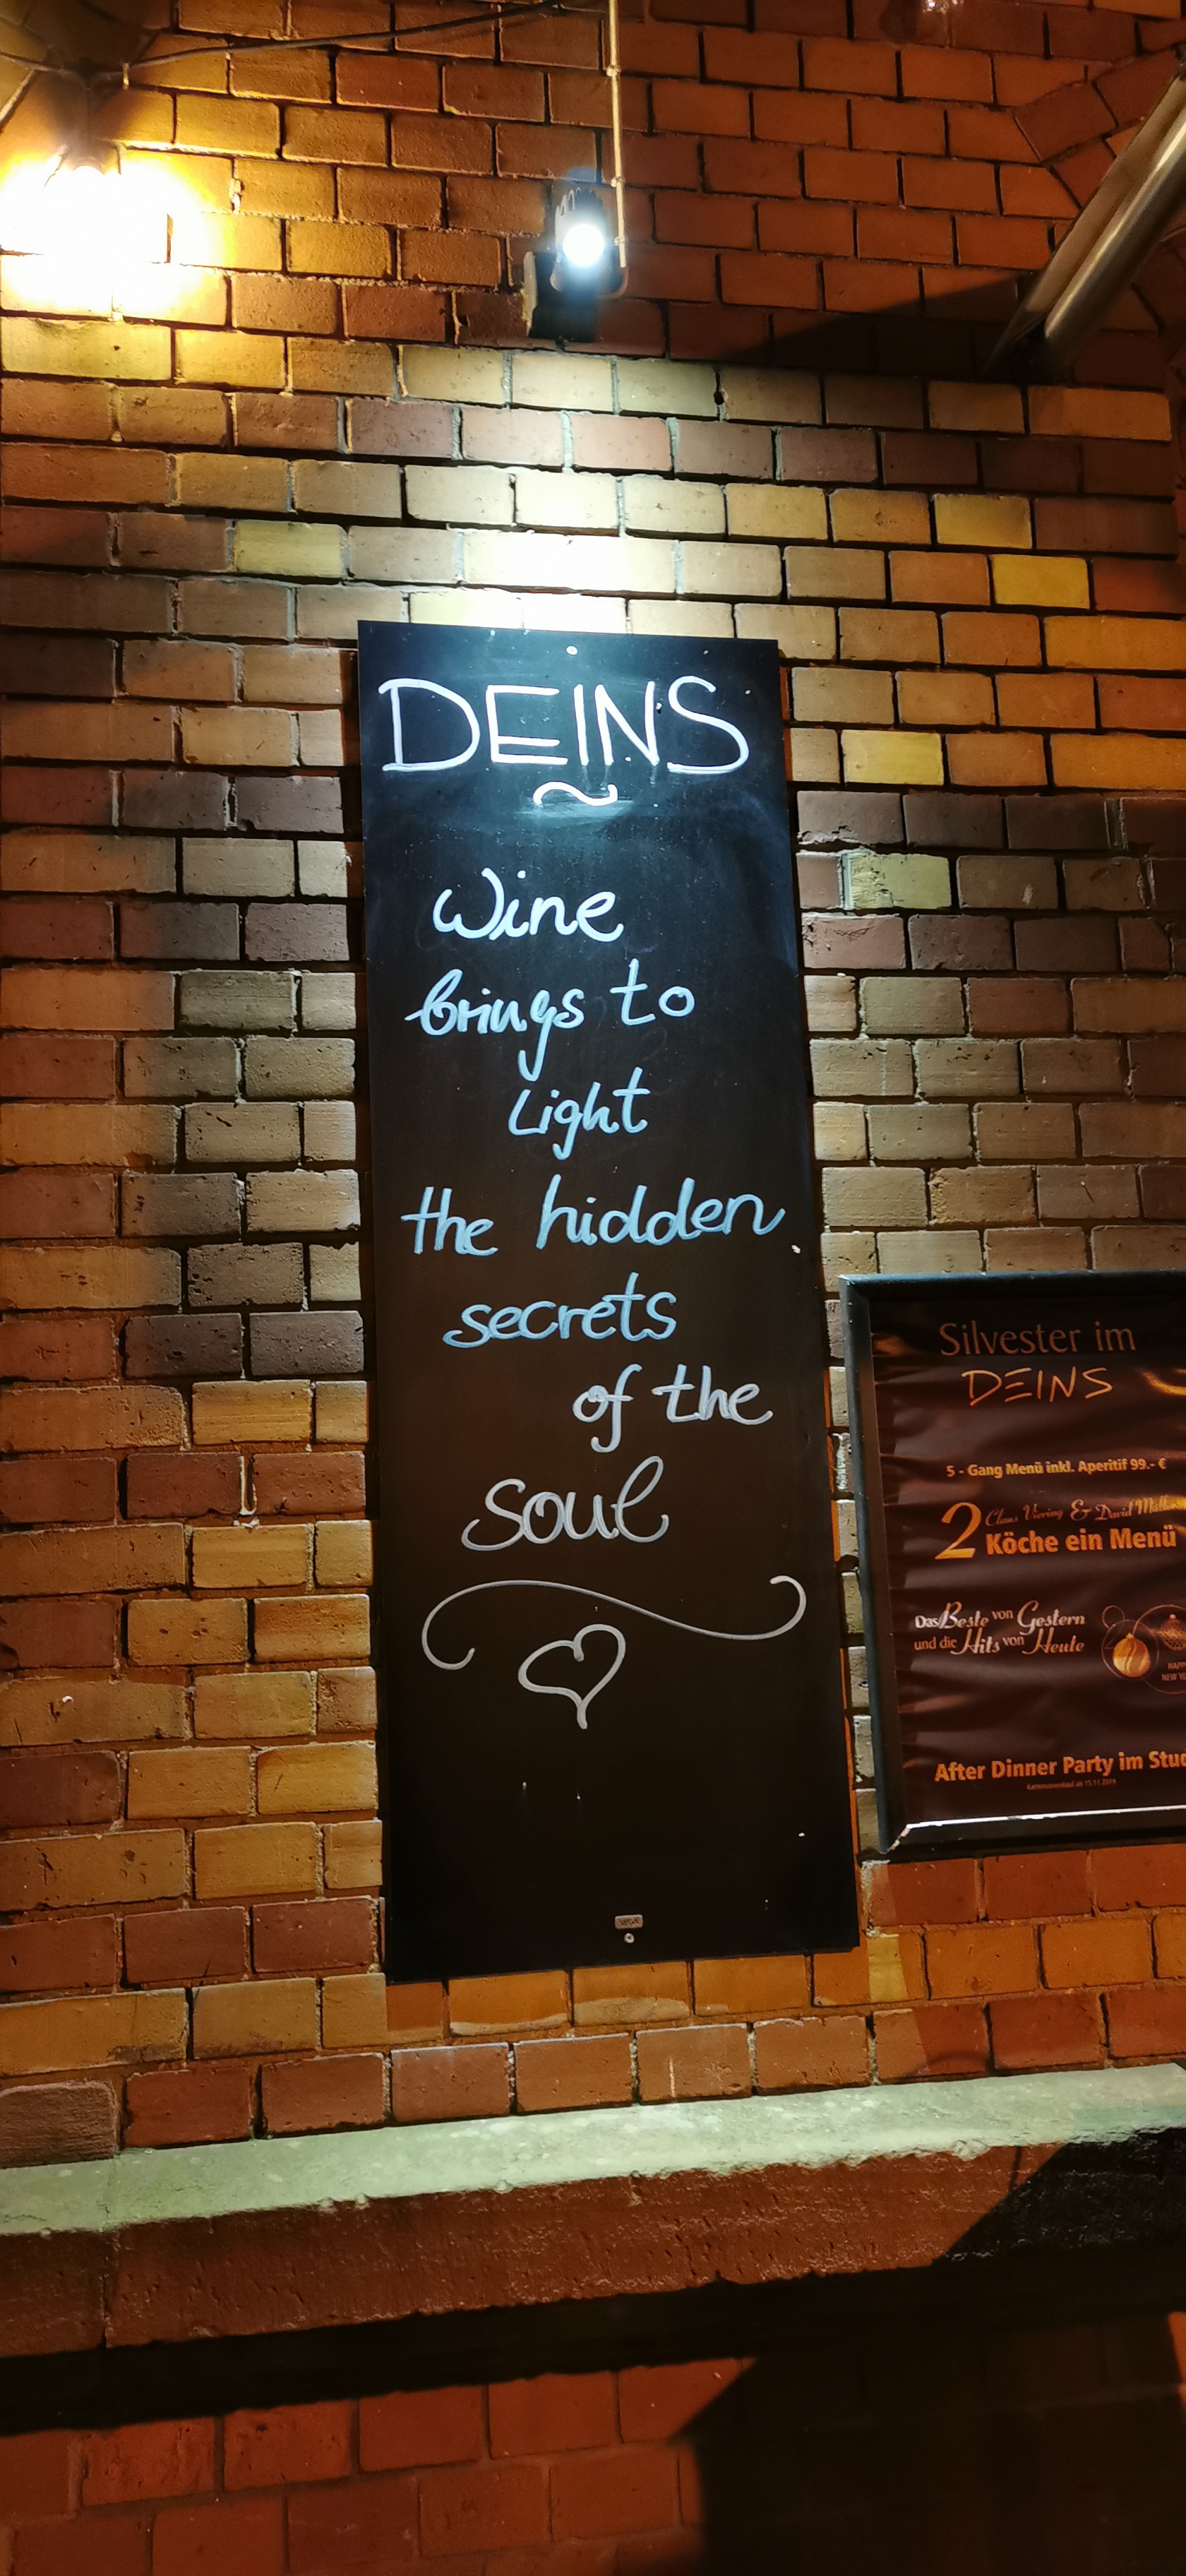 DEINS
Wine
brings to
Light
the hidden
secrets
of the
soul
Silvester im
DEINS
5 - Gang Menü inkl. Aperitif 99.- €
2 Claus Viering & David
Köche ein Menü
Das Beste von Gestern
und die Hits von Heute
After Dinner Party im
Kartenvorverkauf ab 15.11.2019